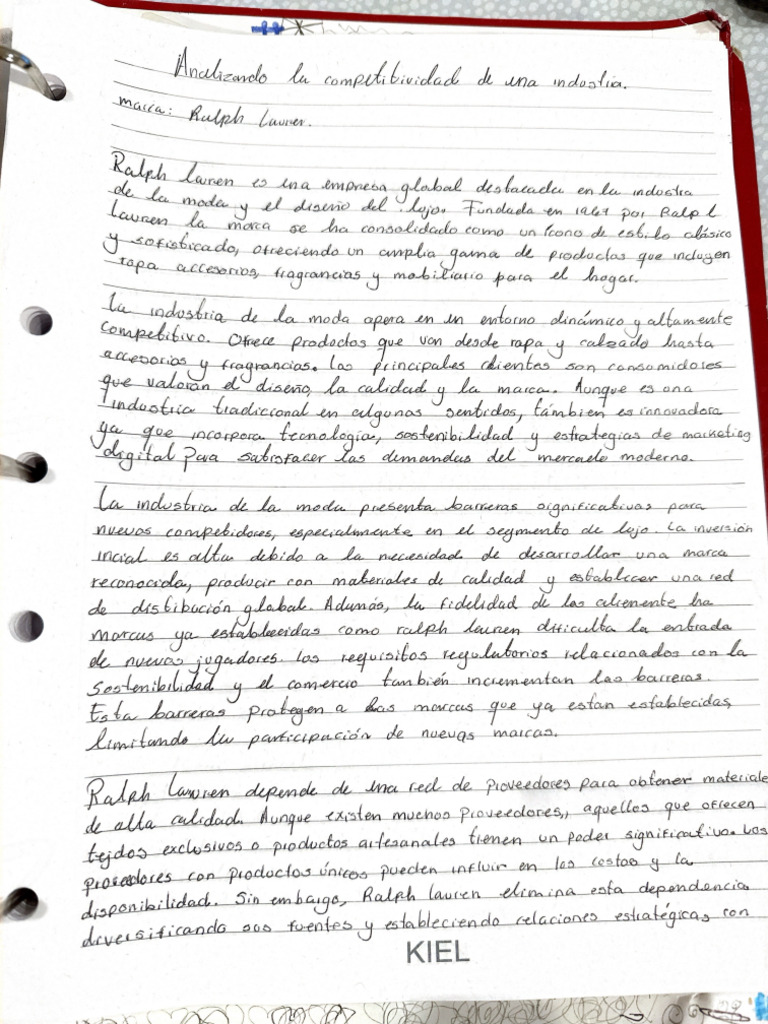 Analizando la competitividad de una industria.
marca: Ralph Lauren.
Ralph lauren es una empresa global destacada en la industria
de la moda y el diseño del lujo. Fundada en 1967 por Ralp l
lauren la marca se ha consolidado como un ícono de estilo clásico
y sofisticado, ofreciendo un amplia gama de productos que incluyen
ropa accesorios, fragrancias y mobiliario para el hogar.
La industria de la moda opera en un entorno dinámico y altamente
competitivo. Ofrece productos que van desde ropa y calzado hasta
accesorios y fragrancias. Los principales clientes son consumidores
que valoran el diseño, la calidad y la marca. Aunque es una
industria tradicional en algunos sentidos, támbien es innovadora
ya que incorpora tecnología, sostenibilidad y estrategias de marketing
digital para satisfacer las demandas del mercado moderno.
La industria de la moda presenta barreras significativas para
nuevos competidores, especialmente en el segmento de lujo. La inversión
incial es alta debido a la necesidad de desarrollar una marca
reconocida, producir con materiales de calidad y establecer una red
de distibución global. Además, la fidelidad de los calienente ha
marcas ya establecidas como ralph lauren dificulta la entrada
de nuevos jugadores. Los requisitos regulatorios relacionados con la
sostenibilidad y el comercio también incrementan las barreras.
Esta barreras protegen a las marcas que ya estan establecidas,
limitando la participación de nuevas marcas.
Ralph Lauren depende de una red de proveedores para obtener materiale
de alta calidad. Aunque existen muchos proveedores, aquellos que ofrecen
tejidos exclusivos o productos artesanales tienen un poder significativo. Los
proveedores con productos únicos pueden influir en los costos y la
disponibilidad. Sin embargo, Ralph lauren elimina esta dependencia
diversificando sus fuentes y estableciendo relaciones estratégicas con
KIEL